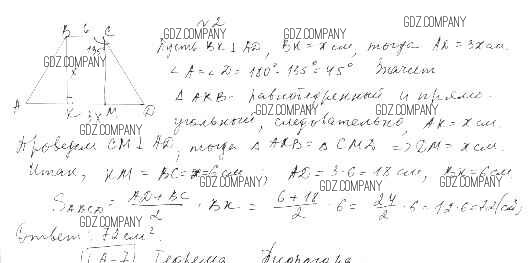 №2
B 6 C
135°
x
A K 3x M D
Пусть BK ⊥ AD, BK = x см, тогда AD = 3x см.
∠A = ∠D = 180° - 135° = 45° Значит
△ AKB - равнобедренный и прямо-
угольный, следовательно, AK = x см.
Проведем CM ⊥ AD, тогда △ AKB = △ CMD => DM = x см.
Итак, KM = BC = x = 6 см, AD = 3·6 = 18 см, BK = 6 см
S ABCD = AD + BC / 2 · BK = 6+18 / 2 · 6 = 24 / 2 · 6 = 12·6 = 72 (см²)
Ответ: 72 см².
А-7 Теорема Пифагора
GDZ.COMPANY
GDZ.COMPANY
GDZ.COMPANY
GDZ.COMPANY
GDZ.COMPANY
GDZ.COMPANY
GDZ.COMPANY
GDZ.COMPANY
GDZ.COMPANY
GDZ.COMPANY
GDZ.COMPANY
GDZ.COMPANY
GDZ.COMPANY